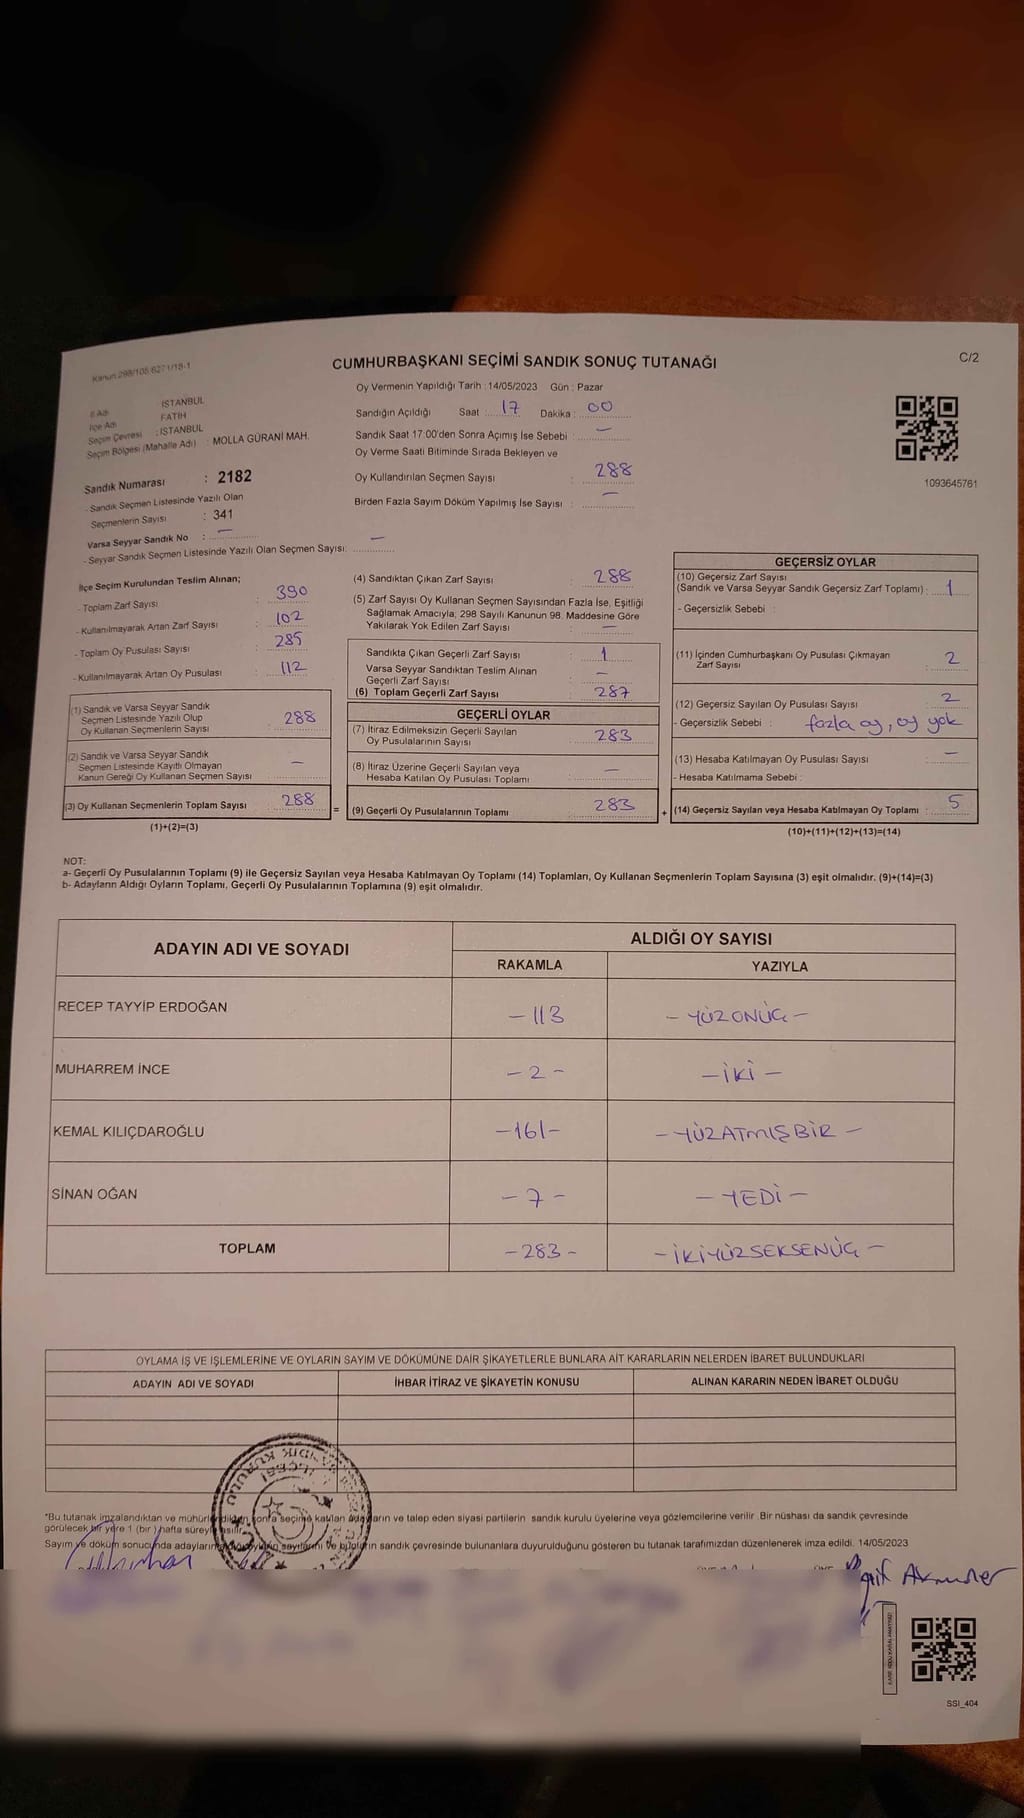 Kanun:298/105,6271/18-1
CUMHURBAŞKANI SEÇİMİ SANDIK SONUÇ TUTANAĞI
C/2
Oy Vermenin Yapıldığı Tarih :14/05/2023 Gün : Pazar
İl Adı : İSTANBUL
İlçe Adı FATİH
Seçim Çevresi : İSTANBUL
Seçim Bölgesi (Mahalle Adı) : MOLLA GÜRANİ MAH.
Sandığın Açıldığı Saat 17 Dakika : 00
Sandık Saat 17:00'den Sonra Açımış İse Sebebi : —
Oy Verme Saati Bitiminde Sırada Bekleyen ve
Oy Kullandırılan Seçmen Sayısı : 288
Birden Fazla Sayım Döküm Yapılmış İse Sayısı : —
1093645761
Sandık Numarası : 2182
- Sandık Seçmen Listesinde Yazılı Olan
Seçmenlerin Sayısı : 341
Varsa Seyyar Sandık No : —
- Seyyar Sandık Seçmen Listesinde Yazılı Olan Seçmen Sayısı: —
İlçe Seçim Kurulundan Teslim Alınan;
- Toplam Zarf Sayısı : 390
- Kullanılmayarak Artan Zarf Sayısı : 102
- Toplam Oy Pusulası Sayısı : 285
- Kullanılmayarak Artan Oy Pusulası : 112
(1) Sandık ve Varsa Seyyar Sandık
Seçmen Listesinde Yazılı Olup
Oy Kullanan Seçmenlerin Sayısı : 288
(2) Sandık ve Varsa Seyyar Sandık
Seçmen Listesinde Kayıtlı Olmayan
Kanun Gereği Oy Kullanan Seçmen Sayısı : —
(3) Oy Kullanan Seçmenlerin Toplam Sayısı : 288
(1)+(2)=(3)
=
(4) Sandıktan Çıkan Zarf Sayısı : 288
(5) Zarf Sayısı Oy Kullanan Seçmen Sayısından Fazla İse, Eşitliği
Sağlamak Amacıyla, 298 Sayılı Kanunun 98. Maddesine Göre
Yakılarak Yok Edilen Zarf Sayısı : —
Sandıkta Çıkan Geçerli Zarf Sayısı : 1
Varsa Seyyar Sandıktan Teslim Alınan
Geçerli Zarf Sayısı : —
(6) Toplam Geçerli Zarf Sayısı : 287
GEÇERLİ OYLAR
(7) İtiraz Edilmeksizin Geçerli Sayılan
Oy Pusulalarının Sayısı : 283
(8) İtiraz Üzerine Geçerli Sayılan veya
Hesaba Katılan Oy Pusulası Toplamı : —
(9) Geçerli Oy Pusulalarının Toplamı : 283
+
GEÇERSİZ OYLAR
(10) Geçersiz Zarf Sayısı
(Sandık ve Varsa Seyyar Sandık Geçersiz Zarf Toplamı) : 1
- Geçersizlik Sebebi :
(11) İçinden Cumhurbaşkanı Oy Pusulası Çıkmayan
Zarf Sayısı : 2
(12) Geçersiz Sayılan Oy Pusulası Sayısı : 2
- Geçersizlik Sebebi : fazla oy, oy yok
(13) Hesaba Katılmayan Oy Pusulası Sayısı : —
- Hesaba Katılmama Sebebi :
(14) Geçersiz Sayılan veya Hesaba Katılmayan Oy Toplamı : 5
(10)+(11)+(12)+(13)=(14)
NOT:
a- Geçerli Oy Pusulalarının Toplamı (9) ile Geçersiz Sayılan veya Hesaba Katılmayan Oy Toplamı (14) Toplamları, Oy Kullanan Seçmenlerin Toplam Sayısına (3) eşit olmalıdır. (9)+(14)=(3)
b- Adayların Aldığı Oyların Toplamı, Geçerli Oy Pusulalarının Toplamına (9) eşit olmalıdır.
ADAYIN ADI VE SOYADI
ALDIĞI OY SAYISI
RAKAMLA YAZIYLA
RECEP TAYYİP ERDOĞAN - 113 - YÜZONÜÇ -
MUHARREM İNCE - 2 - - İKİ -
KEMAL KILIÇDAROĞLU -161- - YÜZATMIŞBİR -
SİNAN OĞAN - 7 - - YEDİ -
TOPLAM - 283 - - İKİYÜZSEKSENÜÇ -
OYLAMA İŞ VE İŞLEMLERİNE VE OYLARIN SAYIM VE DÖKÜMÜNE DAİR ŞİKAYETLERLE BUNLARA AİT KARARLARIN NELERDEN İBARET BULUNDUKLARI
ADAYIN ADI VE SOYADI İHBAR İTİRAZ VE ŞİKAYETİN KONUSU ALINAN KARARIN NEDEN İBARET OLDUĞU
*Bu tutanak imzalandıktan ve mühürlendikten sonra seçime katılan adayların ve talep eden siyasi partilerin sandık kurulu üyelerine veya gözlemcilerine verilir. Bir nüshası da sandık çevresinde
görülecek bir yere 1 (bir) hafta süreyle asılır.
Sayım ve döküm sonucunda adayların sandık çevresinde bulunanlara duyurulduğunu gösteren bu tutanak tarafımızdan düzenlenerek imza edildi. 14/05/2023
SSI_404